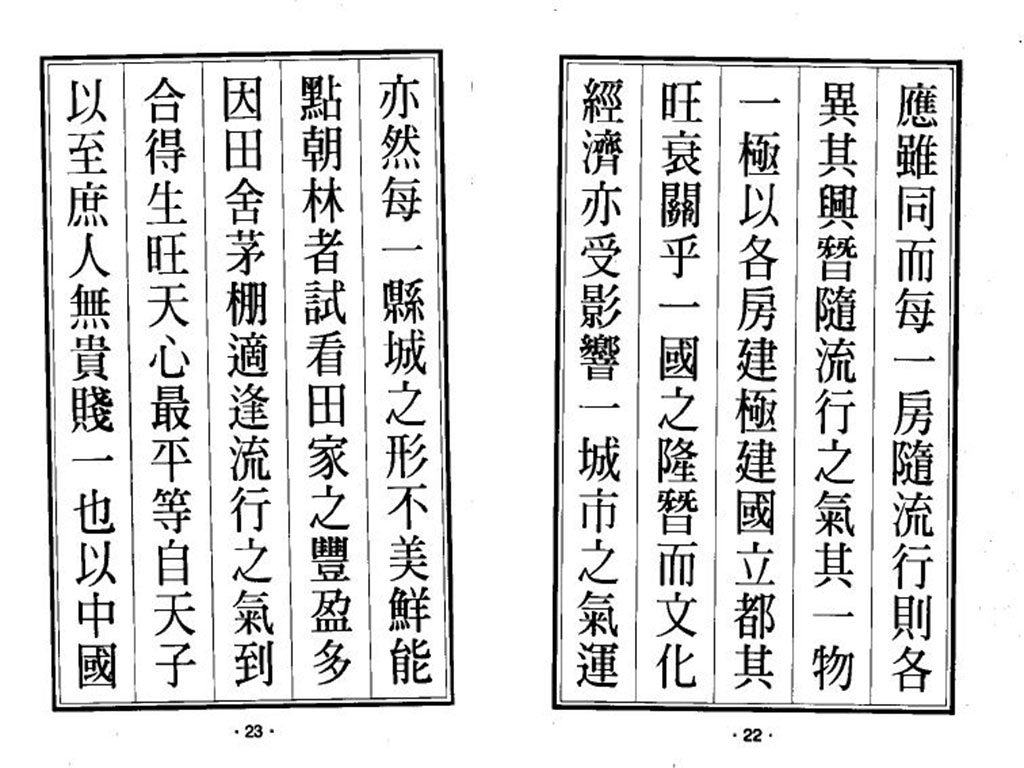 應雖同而每一房隨流行則各
異其興朁隨流行之氣其一物
一極以各房建極建國立都其
旺衰關乎一國之隆朁而文化
經濟亦受影響一城市之氣運
·22·
亦然每一縣城之形不美鮮能
點朝林者試看田家之豐盈多
因田舍茅棚適逢流行之氣到
合得生旺天心最平等自天子
以至庶人無貴賤一也以中國
·23·